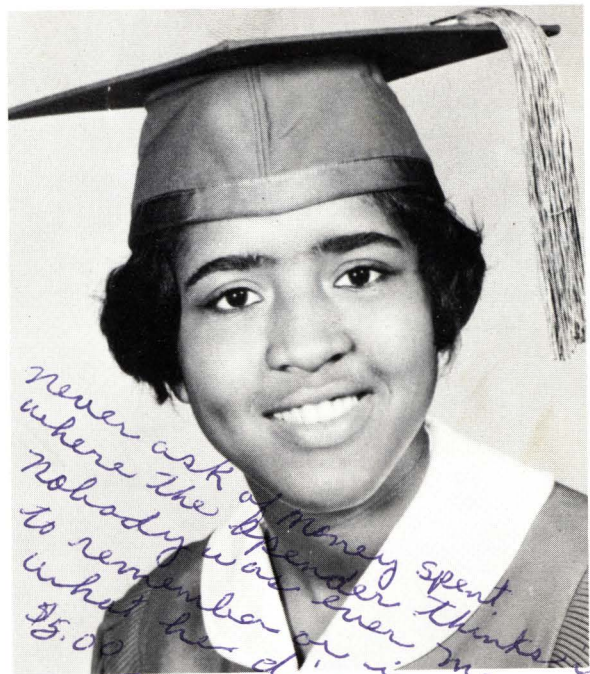 never ask of money spent
where the spender thinks
nobody was ever
to remember or i
what he d
$5.00